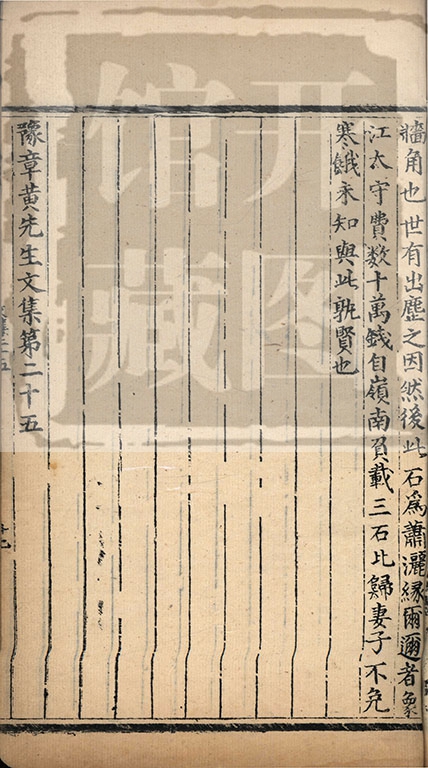 牆角也世有出塵之因然後此石爲蕭灑縁爾邇者象
江太守費数十萬錢自嶺南負載三石比歸妻子不免
寒餓未知與此孰賢也
豫章黄先生文集第二十五
开图馆藏